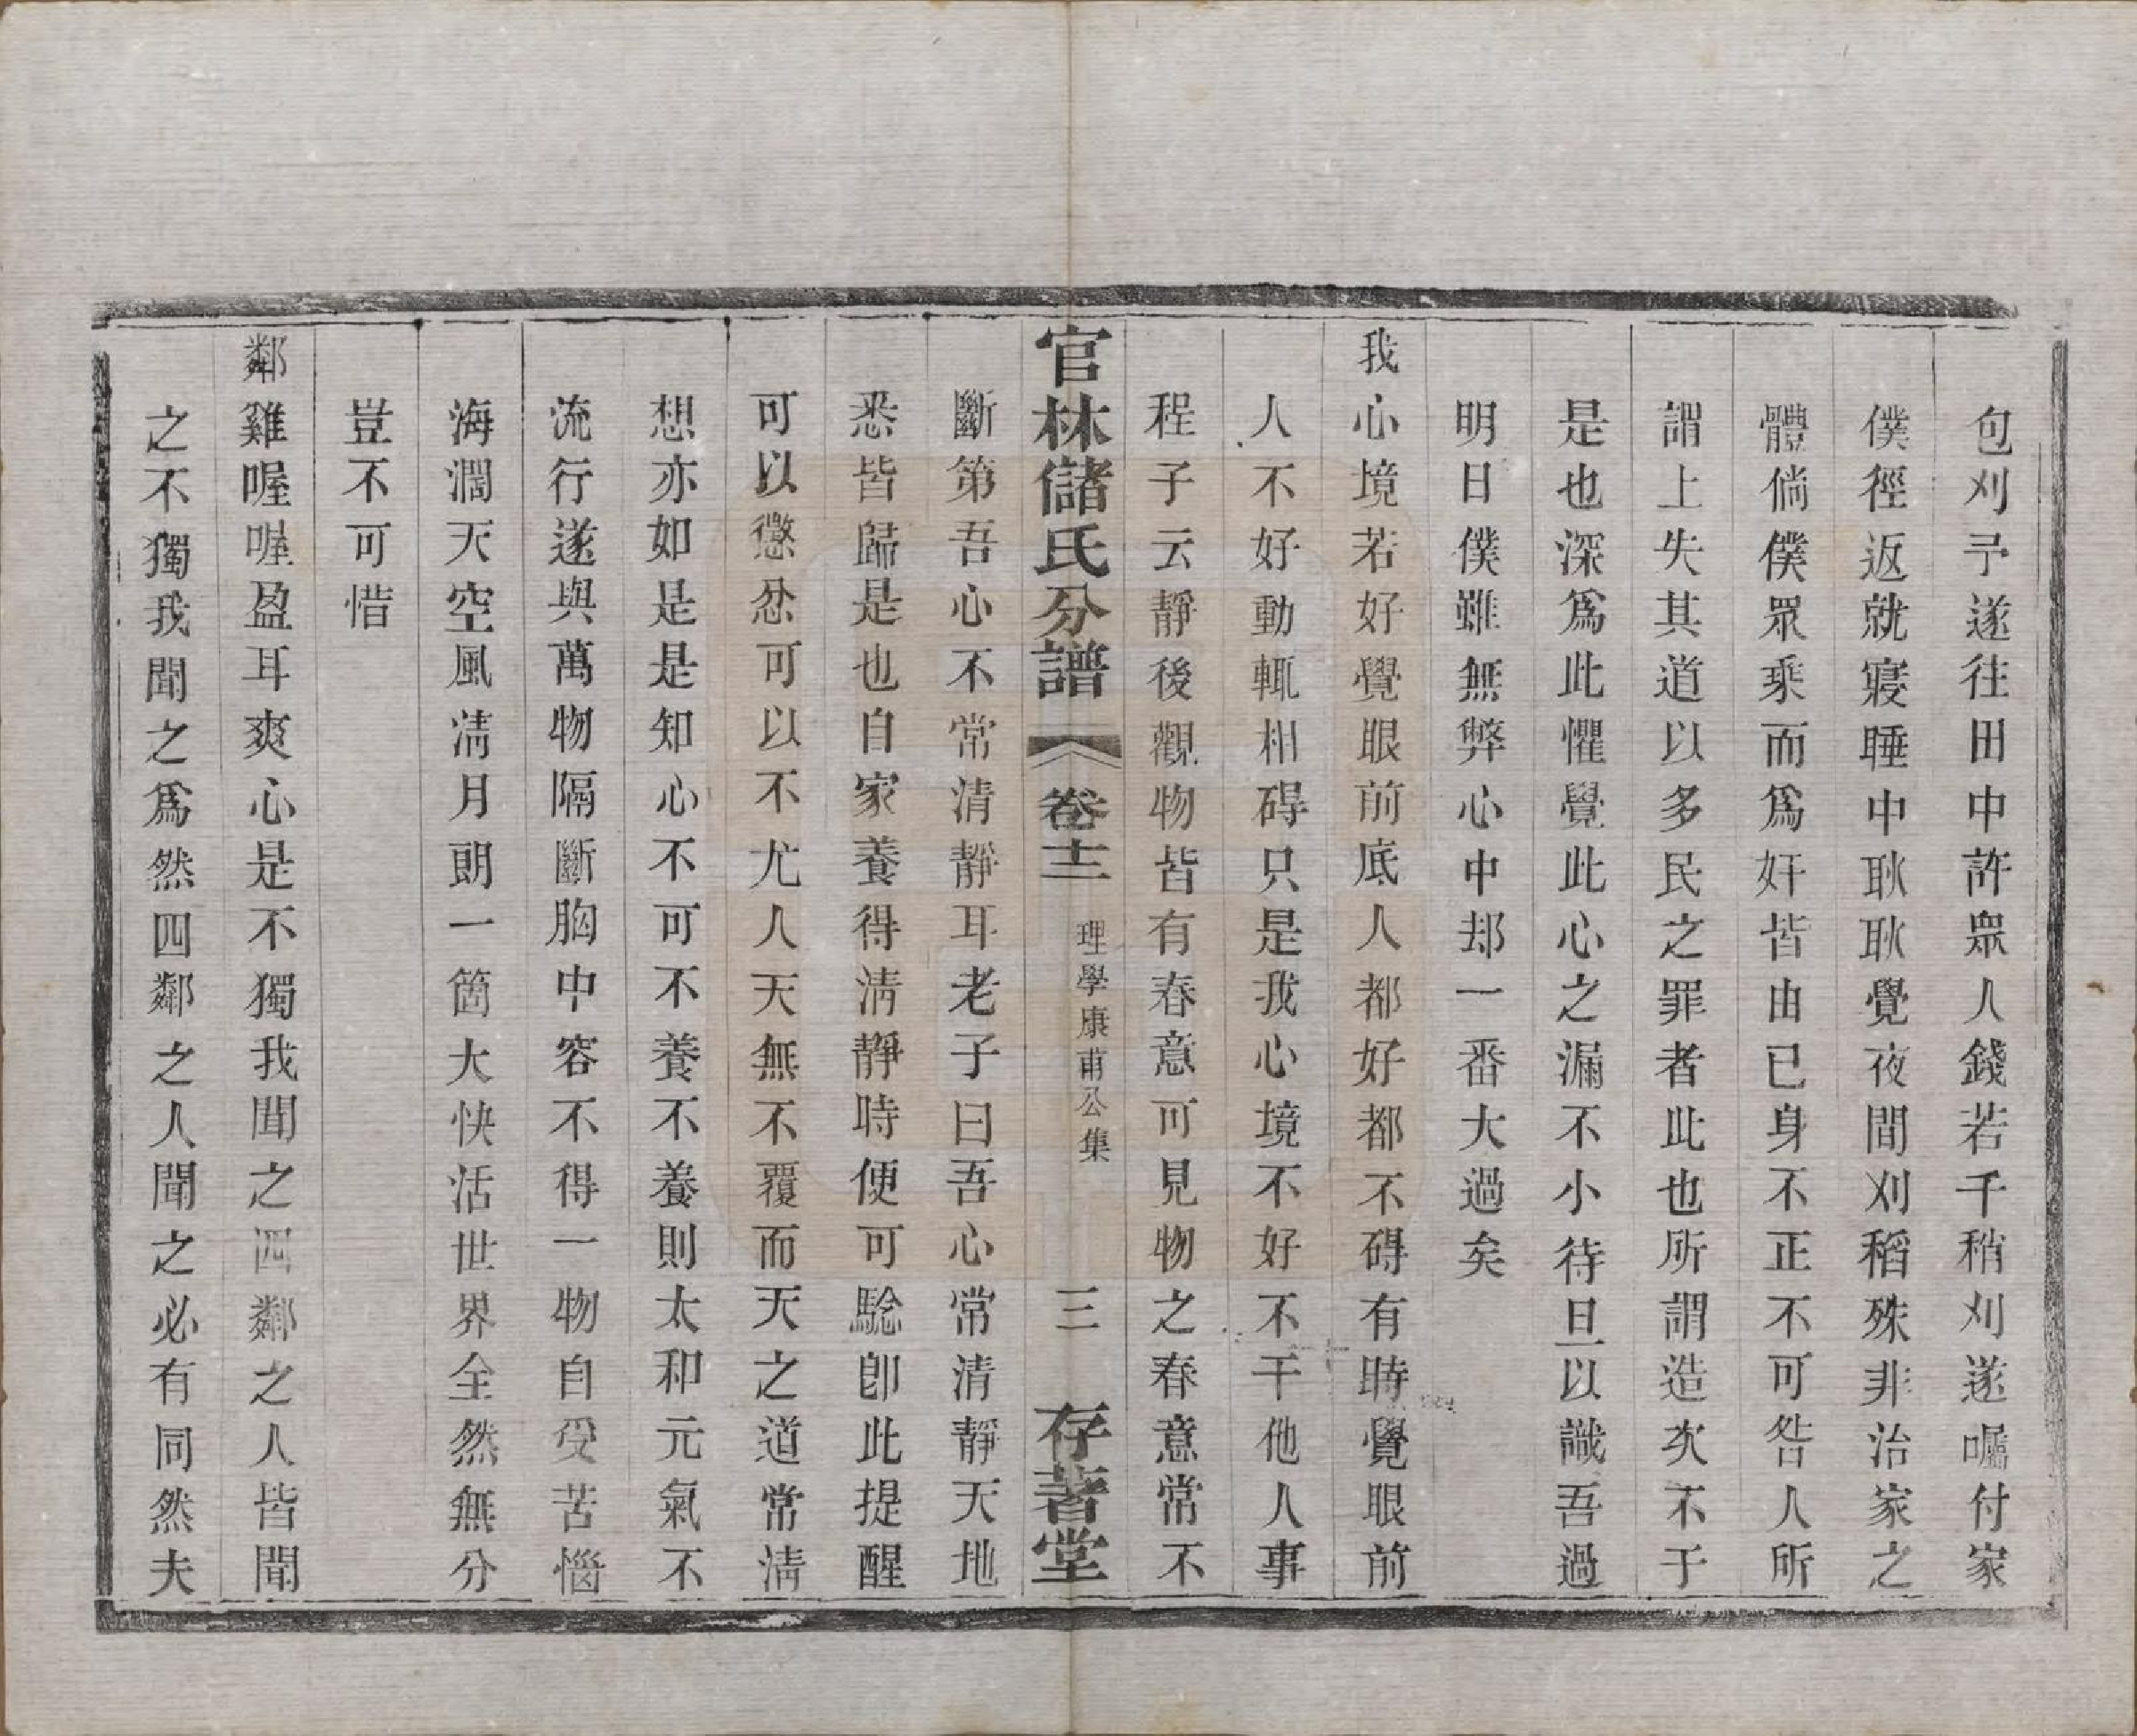 包刈予遂往田中許眾人錢若千稍刈遂囑付家
僕徑返就寢睡中耿耿覺夜間刈稻殊非治家之
體倘僕眾乘而爲奸皆由已身不正不可咎人所
謂上失其道以多民之罪者此也所謂造次不于
是也深爲此懼覺此心之漏不小待旦以識吾過
明日僕雖無弊心中却一番大過矣
我心境若好覺眼前底人都好都不碍有時覺眼前
人不好動輒相碍只是我心境不好不干他人事
程子云靜後觀物皆有春意可見物之春意常不
官林儲氏分譜 卷十二 理學康甫公集 三 存著堂
斷第吾心不常清靜耳老子曰吾心常清靜天地
悉皆歸是也自家養得清靜時便可騐卽此提醒
可以懲忿可以不尤人天無不覆而天之道常清
想亦如是是知心不可不養不養則太和元氣不
流行遂與萬物隔斷胸中容不得一物自受苦惱
海濶天空風清月朗一箇大快活世界全然無分
豈不可惜
鄰雞喔喔盈耳爽心是不獨我聞之四鄰之人皆聞
之不獨我聞之爲然四鄰之人聞之必有同然夫